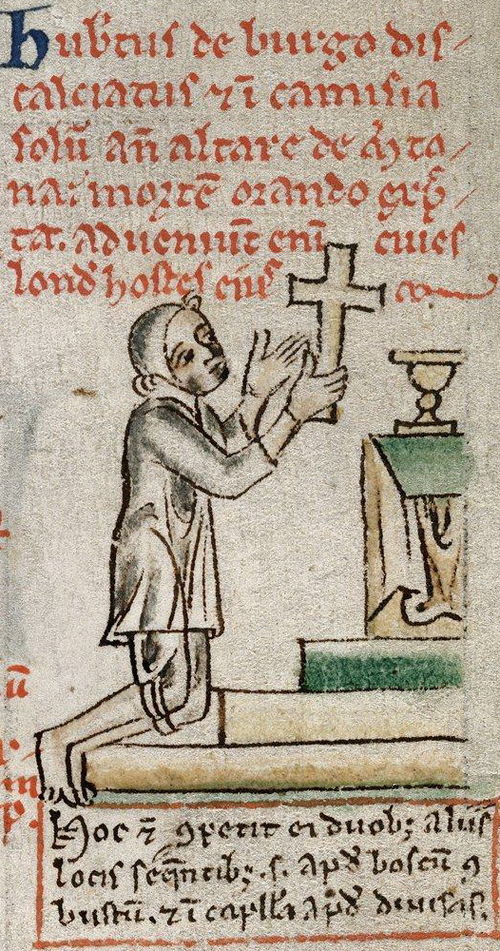 Hub̄tus de burgo dis-
calciatus ⁊ ī camisia
solū an̄ altare de M̄to-
na: mortē orando exp̄c-
tat. adueniūt enī ciues
lond̄ hostes eiꝰ
Hoc ⁊̄ ꝯpetit ei duobꝫ aliis
locis seqn̄tibꝫ. s. apd̄ boscū ꝯ
bustū. ⁊ ī capll̄a apd̄ diuisas.